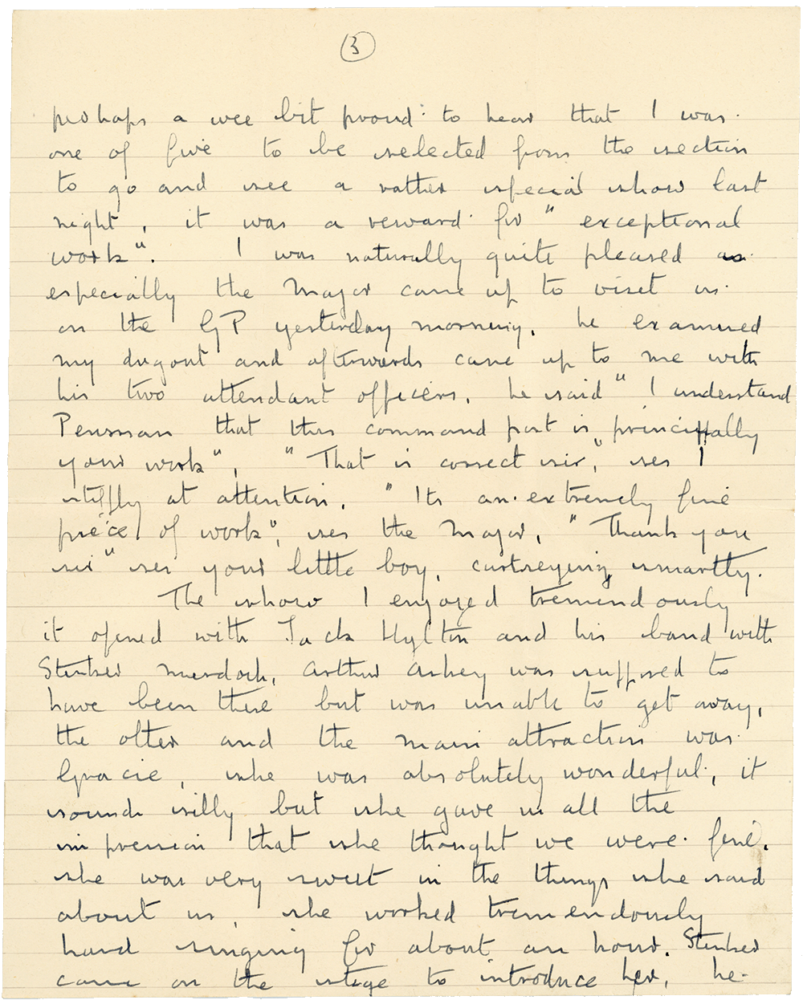 3
perhaps a wee bit proud: to hear that I was
one of five to be selected from the section
to go and see a rather special show last
night, it was a reward for "exceptional
work". I was naturally quite pleased as
especially the Major came up to visit us
on the GP yesterday morning, he examined
my dugout and afterwards came up to me with
his two attendant officers, he said "I understand
Penman that this command post is principally
your work", "That is correct sir", ses I
stiffly at attention, "Its an extremely fine
piece of work", ses the Major, "Thank you
sir" ses your little boy, curtseying smartly.
The show I enjoyed tremendously
it opened with Jack Hylton and his band with
Stinker Murdoch, Arthur Askey was supposed to
have been there but was unable to get away,
the other and the main attraction was
Gracie, she was absolutely wonderful, it
sounds silly but she gave us all the
impression that she thought we were fine,
she was very sweet in the things she said
about us, she worked tremendously
hard singing for about an hour. Stinker
came on the stage to introduce her, he